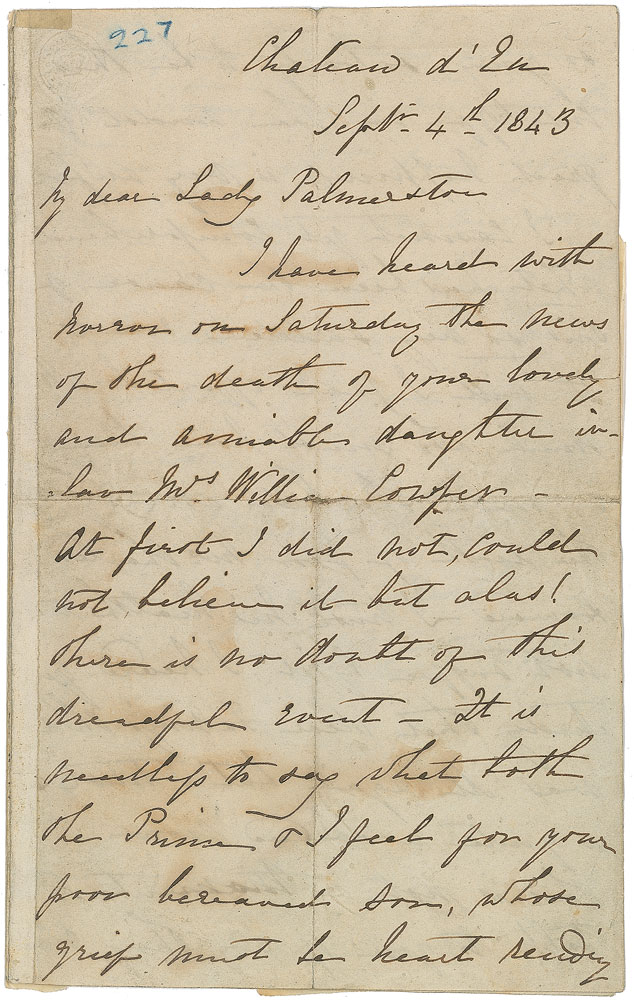 227
Chateau d'Eu
Septr. 4th 1843
My dear Lady Palmerston
I have heard with
horror on Saturday the news
of the death of your lovely
and amiable daughter in-
-law Mrs William Cowper -
At first I did not, could
not believe it but alas!
there is no doubt of this
dreadful event - It is
needless to say what both
the Prince & I feel for your
poor bereaved son, whose
grief must be heart rending